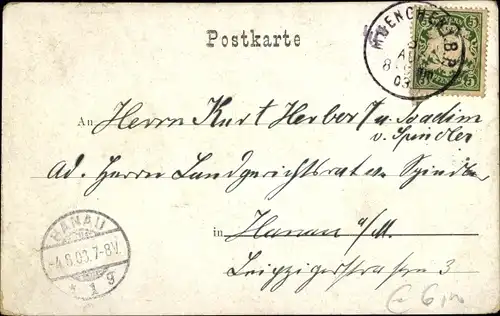 Postkarte
MUENCHEN B.P.
3
AU
8
03
5 5
An Herrn Kurt Herbert u. Joachim
v. Spindler
Ad. Herrn Landgerichtsrat v. Spindler
HANAU
-4.8.03.7-8V.
* 1 g
in Hanau a/M.
Leipzigerstrasse 3